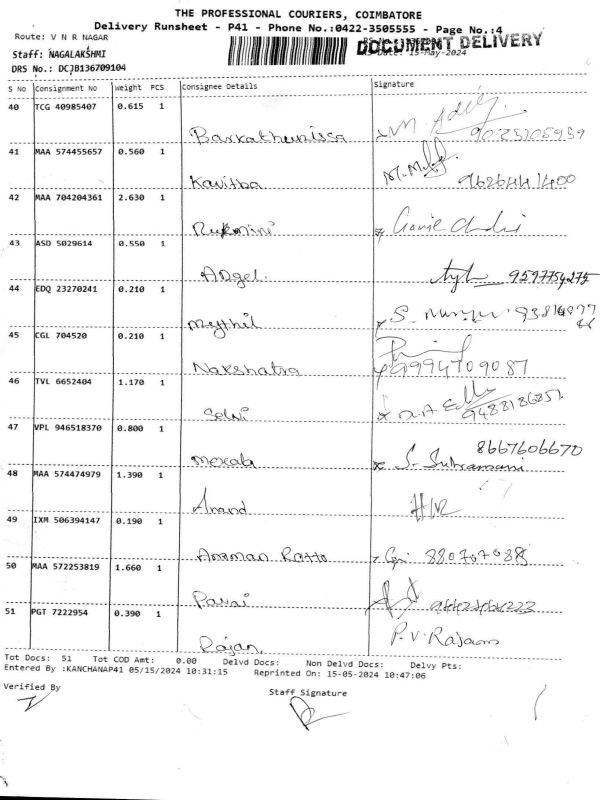 THE PROFESSIONAL COURIERS, COIMBATORE
Delivery Runsheet - P41 - Phone No.:0422-3505555 - Page No.:4
Route: V N R NAGAR
DOCUMENT DELIVERY
Staff: NAGALAKSHMI
Date: 15-May-2024
DRS No.: DCJB136709104
S No Consignment No Weight PCS Consignee Details Signature
40 TCG 40985407 0.615 1
Barkathunissa 9025105959
41 MAA 574455657 0.560 1
Kavitha 9626441400
42 MAA 704204361 2.630 1
Rukmini
43 ASD 5029614 0.550 1
Angel. 9597754275
44 EDQ 23270241 0.210 1
Mythil S.
45 CGL 704520 0.210 1
Nakshatra 9994709087
46 TVL 6652404 1.170 1
Selvi
47 VPL 946518370 0.800 1
8667606670
S. Subramani
48 MAA 574474979 1.390 1
Anand
49 IXM 506394147 0.190 1
Amman
50 MAA 572253819 1.660 1
51 PGT 7222954 0.390 1
Rajan P.V. Rajan
Tot Docs: 51 Tot COD Amt: 0.00 Delvd Docs: Non Delvd Docs: Delvy Pts:
Entered By :KANCHANAP41 05/15/2024 10:31:15 Reprinted On: 15-05-2024 10:47:06
Verified By Staff Signature